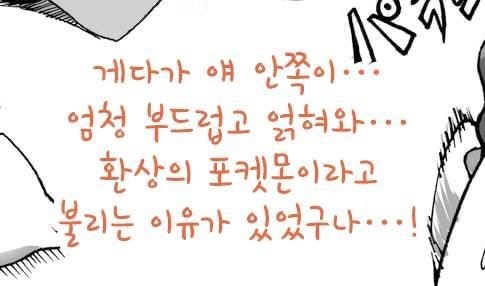 게다가 얘 안쪽이···
엄청 부드럽고 얽혀와···
환상의 포켓몬이라고
불리는 이유가 있었구나···!